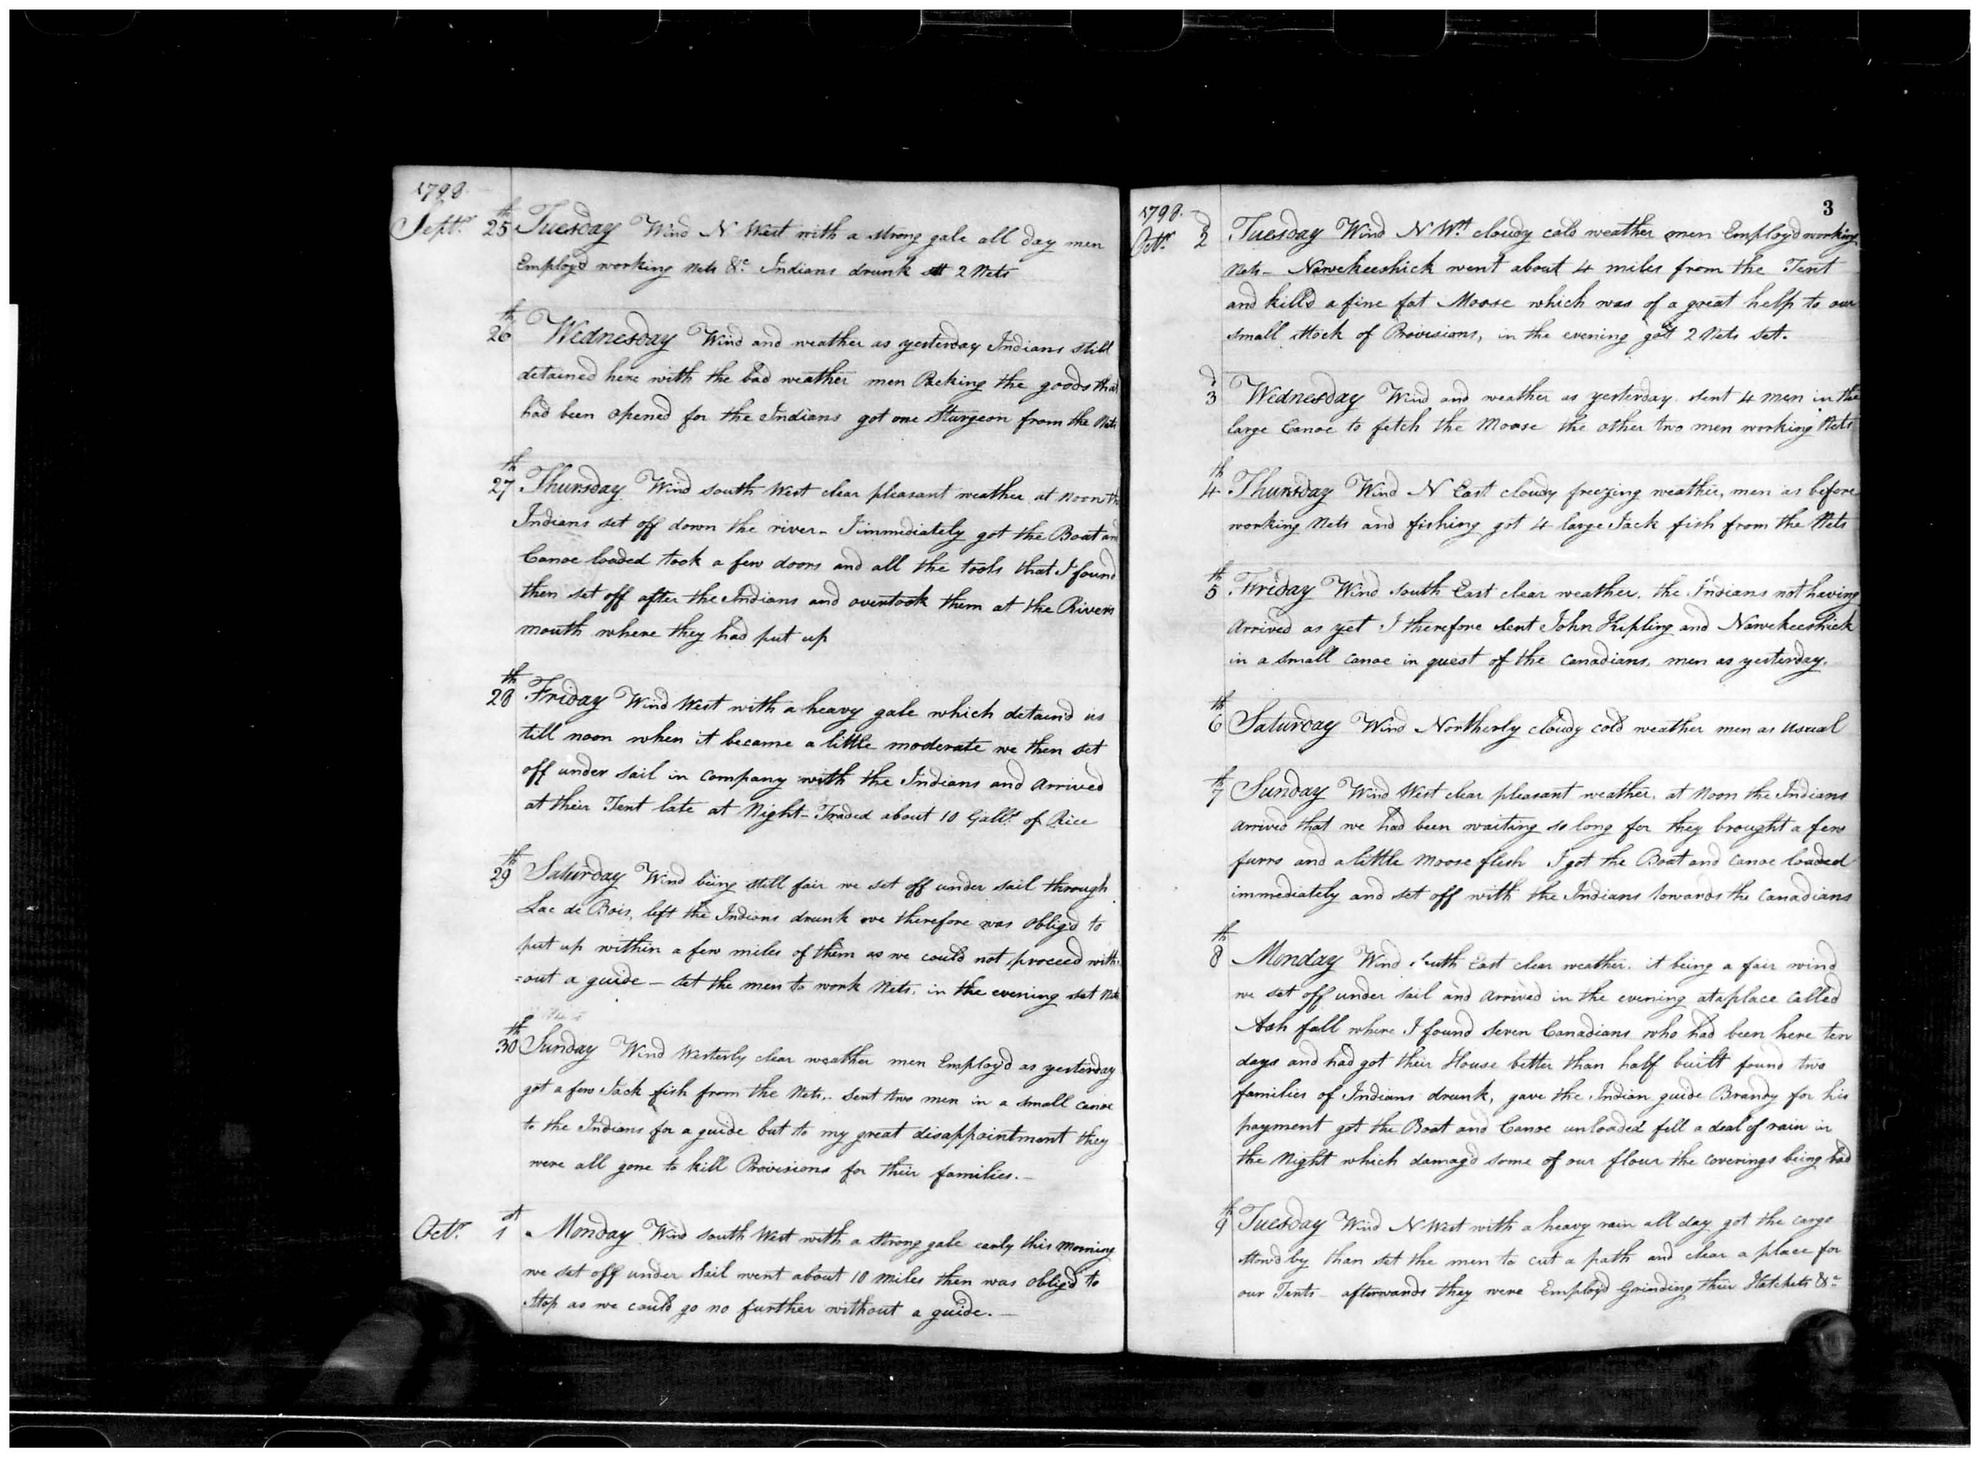 1798.
Septr. 25th Tuesday Wind N West with a strong gale all day men
Employd working Nets &c. Indians drunk set 2 Nets
26th Wednesday Wind and weather as yesterday Indians still
detained here with the bad weather men Packing the goods that
had been opened for the Indians got one Sturgeon from the Nets
27th Thursday Wind south West clear pleasant weather at noon the
Indians set off down the river - I immediately got the Boat and
Canoe loaded took a few doors and all the tools that I found
then set off after the Indians and overtook them at the Rivers
mouth where they had put up
28th Friday Wind West with a heavy gale which detaind us
till noon when it became a little moderate we then set
off under sail in company with the Indians and Arrived
at their Tent late at Night - Traded about 10 Galls. of Rice
29th Saturday Wind being still fair we set off under sail through
Lac de Bois, left the Indians drunk we therefore was Obligd to
put up within a few miles of them as we could not proceed with
=out a guide - set the men to work Nets, in the evening set Nets
30th Sunday Wind Westerly clear weather men Employd as yesterday
got a few Jack fish from the Nets, sent two men in a small canoe
to the Indians for a guide but to my great disappointment they
were all gone to kill Provisions for their families. -
Octr. 1st Monday Wind south West with a strong gale early this morning
we set off under Sail went about 10 miles then was Obligd to
Stop as we could go no further without a guide. -
3
1798.
Octr. 2d Tuesday Wind N Wt. cloudy cold weather men Employd working
Nets - Nawekeeshick went about 4 miles from the Tent
and killd a fine fat Moose which was of a great help to our
small stock of Provisions, in the evening got 2 Nets set.
3d Wednesday Wind and weather as yesterday sent 4 men in the
large Canoe to fetch the Moose the other two men working Nets
4th Thursday Wind N East cloudy freezing weather, men as before
working Nets and fishing got 4 large Jack fish from the Nets
5th Friday Wind South East clear weather, the Indians not having
Arrived as yet I therefore sent John Kipling and Nawekeeshick
in a small canoe in quest of the Canadians, men as yesterday.
6th Saturday Wind Northerly cloudy cold weather men as Usual
7th Sunday Wind West clear pleasant weather, at Noon the Indians
arrived that we had been waiting so long for they brought a few
furrs and a little Moose flesh I got the Boat and Canoe loaded
immediately and set off with the Indians towards the Canadians
8th Monday Wind South East clear weather, it being a fair wind
we set off under sail and Arrived in the evening at a place Called
Ash fall where I found seven Canadians who had been here ten
days and had got their House better than half built found two
families of Indians drunk, gave the Indian guide Brandy for his
payment got the Boat and Canoe unloaded fell a deal of rain in
the Night which damagd some of our flour the Coverings being bad
9th Tuesday Wind N West with a heavy rain all day got the cargo
stowd by than set the men to cut a path and clear a place for
our Tents - afterwards they were Employd Grinding their Hatchets &c